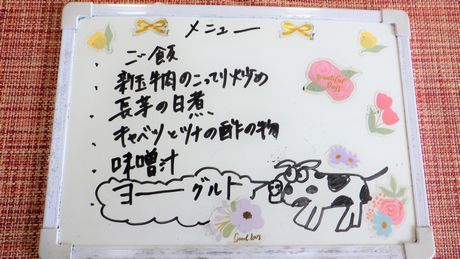 メニュー
・ご飯
・新玉牛肉のこってり炒め
・長芋の白煮
・キャベツとツナの酢の物
・味噌汁
ヨーグルト
Beautiful Days
Good day